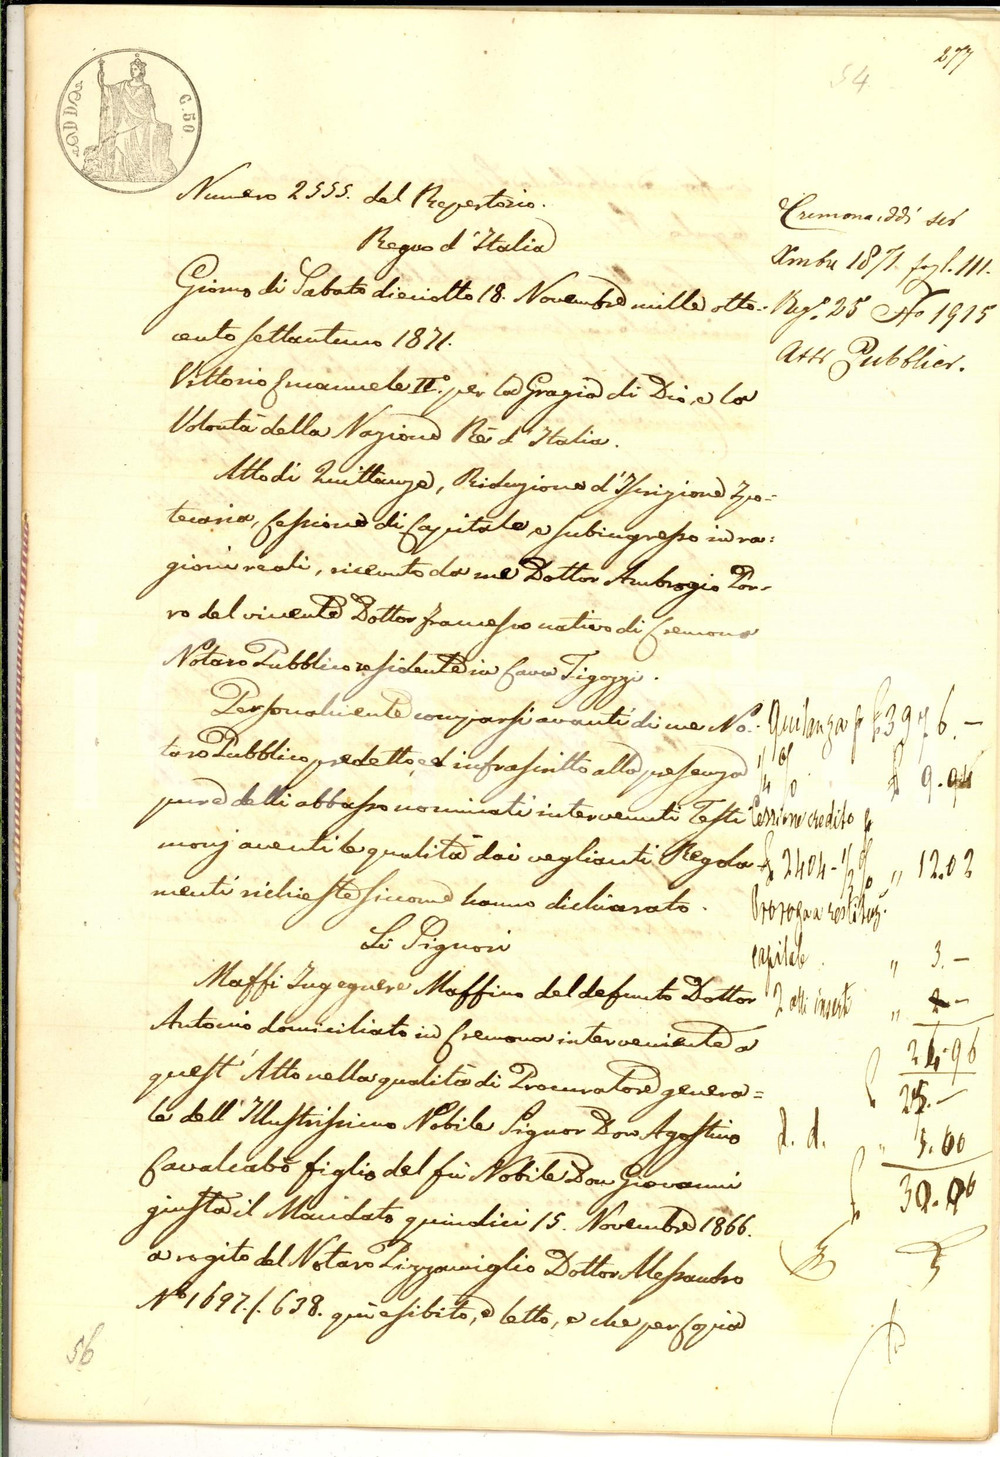 277
54
C. 50
Numero 2555. del Repertorio.
Regno d'Italia
Giorno di Sabato dieciotto 18. Novembre mille otto-
cento settantuno 1871.
Vittorio Emanuele II.° per la Grazia di Dio, e la
Volontà della Nazione Rè d'Italia.
Atto di Quittanza, Riduzione d'Iscrizione Ipo-
tecaria, Cessione di Capitale, e subingresso in ra-
gioni reali, ricevuto da me Dottor Ambrogio Por-
ro del vivente Dottor Francesco nativo di Cremona
Notaro Pubblico residente in Cava Tigozzi.
Personalmente comparsi avanti di me No-
taro Pubblico predetto, ed infrascritto alla presenza
pure delli abbasso nominati intervenuti Testi
monj aventi le qualità dai veglianti Regola
menti richieste siccome hanno dichiarato.
Li Signori
Maffi Ingegnere Maffino del defunto Dottor
Antonio domiciliato in Cremona interveniente a
quest'Atto nella qualità di Procuratore genera-
le dell'Illustrissimo Nobile Signor Don Agostino
Cavalcabò figlio del fù Nobile Don Giovanni
giusta il Mandato quindici 15. Novembre 1866.
a rogito del Notaro Pizzamiglio Dottor Alessandro
N.° 1697/638. quì esibito, e letto, e che per copia
56
Cremona, ddì sei
Xmbre 1871. fogl. 111.
Reg.° 25 N° 1915
Atti Pubblici.
Quitanza p £ 3976.-
£ 9.94
Cessione credito p
£ 2404 - 1/2 % " 12.02
Proroga a restituz.e
capitale " 3.-
2 atti inserti " 2-
24.96
£ 25.-
d. d. " 5.00
£ 30.